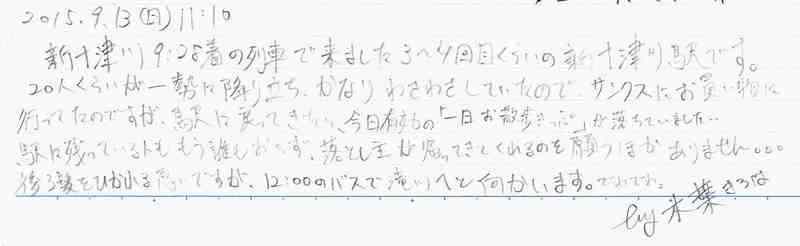 2015.9.13(日)11:10
新十津川9:28着の列車で来ました3〜4回目くらいの新十津川駅です。
20人くらいが一勢に降り立ち、かなりわさわさしていたので、サンクスにお買い物に
行ってたのですが、駅に戻ってきたら、今日有効の「一日お散歩きっぷ」が落ちていました‥
駅に残っている人ももう誰もおらず、落とし主が帰ってきてくれるのを願うほかありません。。。
後ろ髪をひかれる思いですが、12:00のバスで滝川へと向かいます。でわでわ。
by 木葉